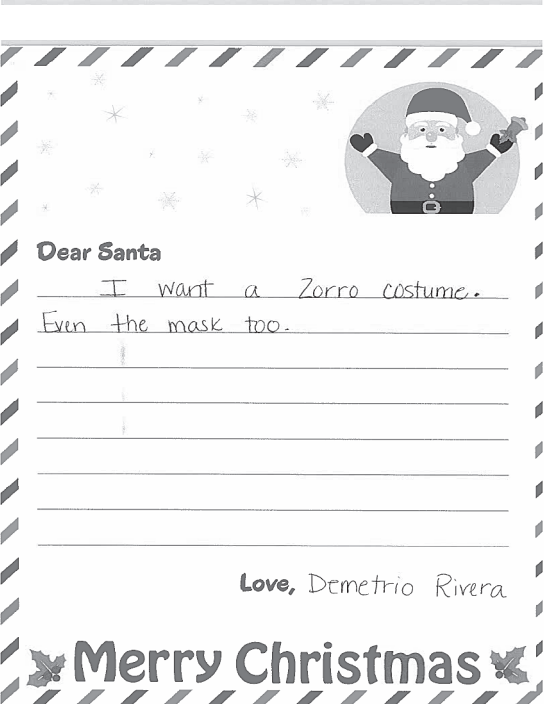 Dear Santa
I want a Zorro costume.
Even the mask too.
Love, Demetrio Rivera
Merry Christmas